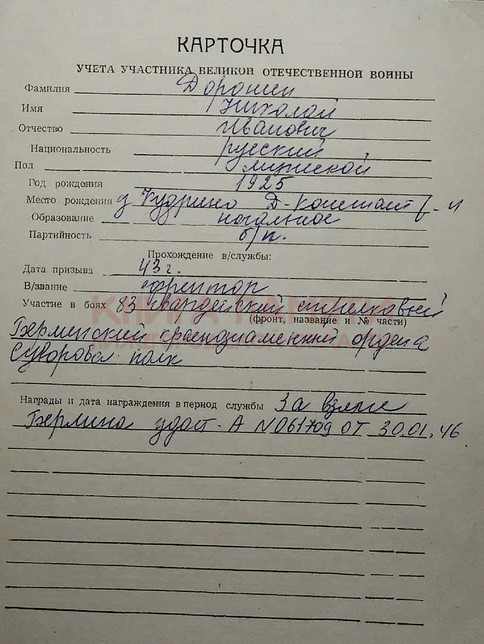 КАРТОЧКА
УЧЕТА УЧАСТНИКА ВЕЛИКОЙ ОТЕЧЕСТВЕННОЙ ВОЙНЫ
Фамилия Доронин
Имя Николай
Отчество Иванович
Национальность русский
Пол мужской
Год рождения 1925
Место рождения д. Кудрино Д-Констант
Образование начальное
Партийность б/п.
Прохождение в/службы:
Дата призыва 43 г.
В/звание
Участие в боях 83 гвардейский стрелковый
(фронт, название и № части)
краснознаменний ордена
Суворова полк
Награды и дата награждения в период службы За взятие
Берлина удост-А N061709 ОТ 30.01.46